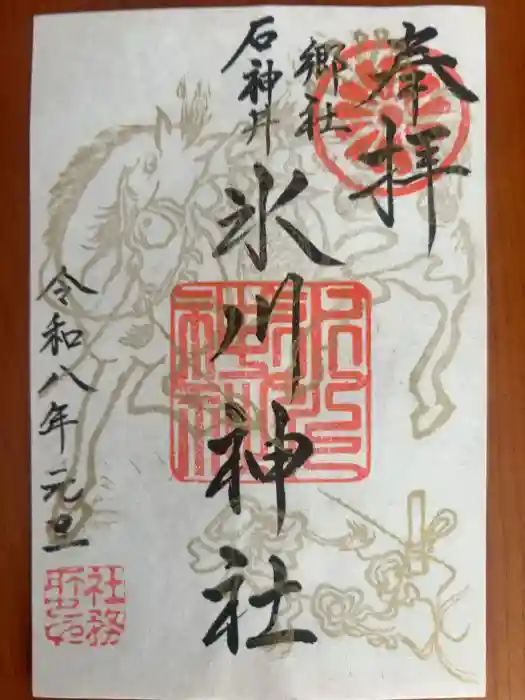 奉拝
郷社
石神井
氷川神社
令和八年元旦
氷川神社
社務所